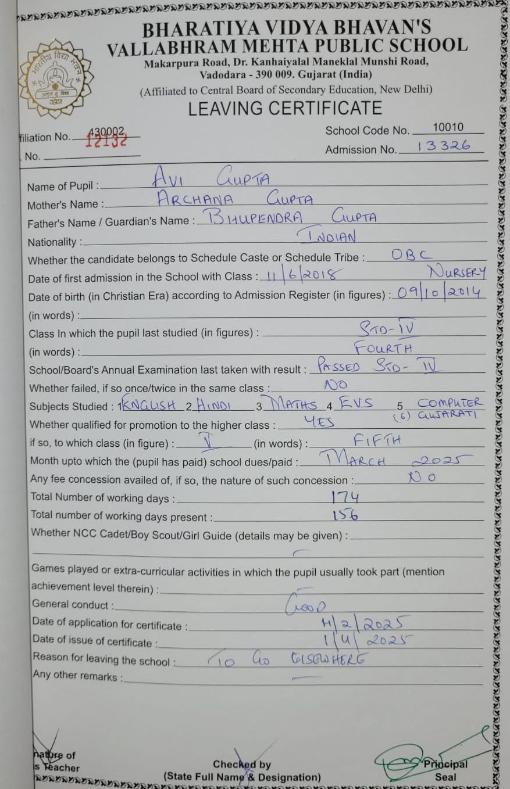 BHARATIYA VIDYA BHAVAN'S
VALLABHRAM MEHTA PUBLIC SCHOOL
Makarpura Road, Dr. Kanhaiyalal Maneklal Munshi Road,
Vadodara - 390 009. Gujarat (India)
(Affiliated to Central Board of Secondary Education, New Delhi)
LEAVING CERTIFICATE
filiation No. 430002 School Code No. 10010
. No. 12132 Admission No. 13326
Name of Pupil : AVI GUPTA
Mother's Name : ARCHANA GUPTA
Father's Name / Guardian's Name : BHUPENDRA GUPTA
Nationality : INDIAN
Whether the candidate belongs to Schedule Caste or Schedule Tribe : OBC
Date of first admission in the School with Class : 11/6/2018 NURSERY
Date of birth (in Christian Era) according to Admission Register (in figures) : 09/10/2014
(in words) :
Class In which the pupil last studied (in figures) : STD-IV
(in words) : FOURTH
School/Board's Annual Examination last taken with result : PASSED STD- IV
Whether failed, if so once/twice in the same class : NO
Subjects Studied : 1 ENGLISH 2 HINDI 3 MATHS 4 EVS 5 COMPUTER
(6) GUJARATI
Whether qualified for promotion to the higher class : YES
if so, to which class (in figure) : V (in words) : FIFTH
Month upto which the (pupil has paid) school dues/paid : MARCH 2025
Any fee concession availed of, if so, the nature of such concession : NO
Total Number of working days : 174
Total number of working days present : 156
Whether NCC Cadet/Boy Scout/Girl Guide (details may be given) :
Games played or extra-curricular activities in which the pupil usually took part (mention
achievement level therein) :
General conduct : GOOD
Date of application for certificate : /2/2025
Date of issue of certificate : 1/4/2025
Reason for leaving the school : TO GO ELSEWHERE
Any other remarks :
nature of
s Teacher
Checked by
(State Full Name & Designation)
Principal
Seal